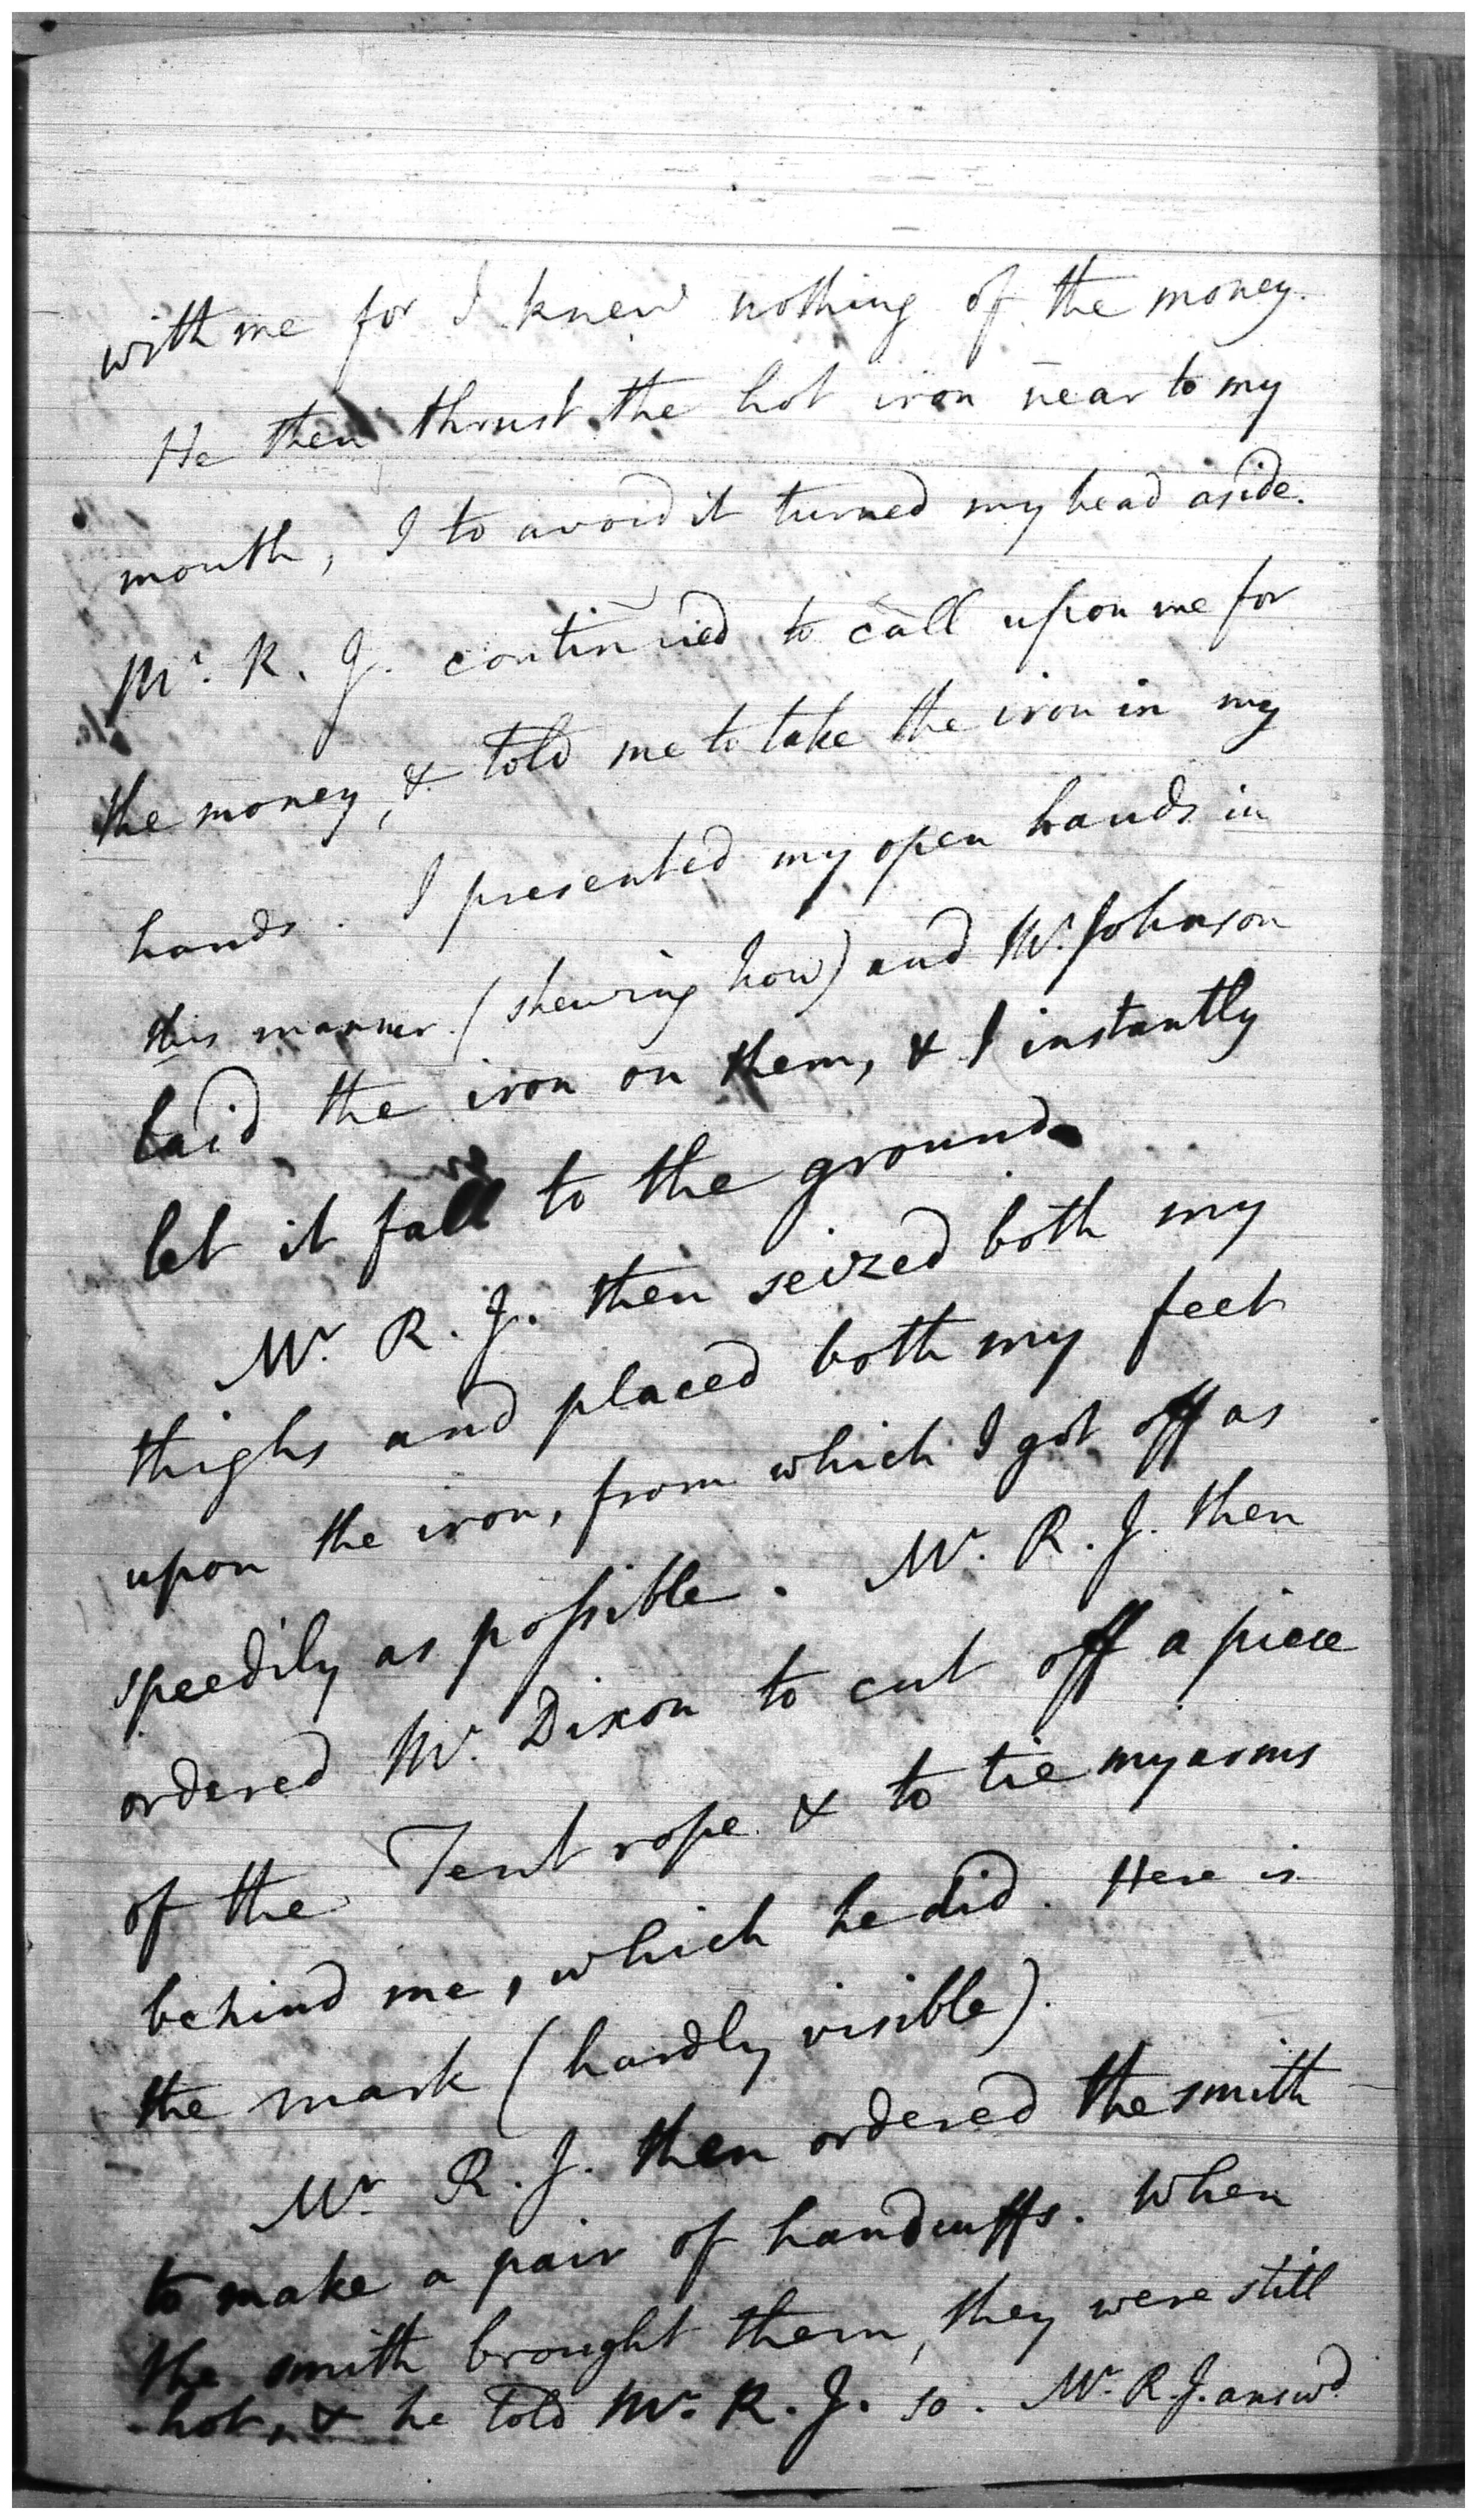 with me for I knew nothing of the money.
He then thrust the hot iron near to my
mouth, I to avoid it turned my head aside.
Mr. R. J. continued to call upon me for
the money, & told me to take the iron in my
hands. I presented my open hands in
this manner (shewing how) and Mr. Johnson
laid the iron on them, & I instantly
let it fall to the ground.
Mr. R. J. then seized both my
thighs and placed both my feet
upon the iron, from which I got off as
speedily as possible. Mr. R. J. then
ordered Mr. Dixon to cut off a piece
of the Tent rope & to tie my arms
behind me, which he did. Here is
the mark (hardly visible).
Mr. R. J. then ordered the smith
to make a pair of handcuffs. When
the smith brought them, they were still
hot, & he told Mr. R. J. so. Mr. R. J. answd.